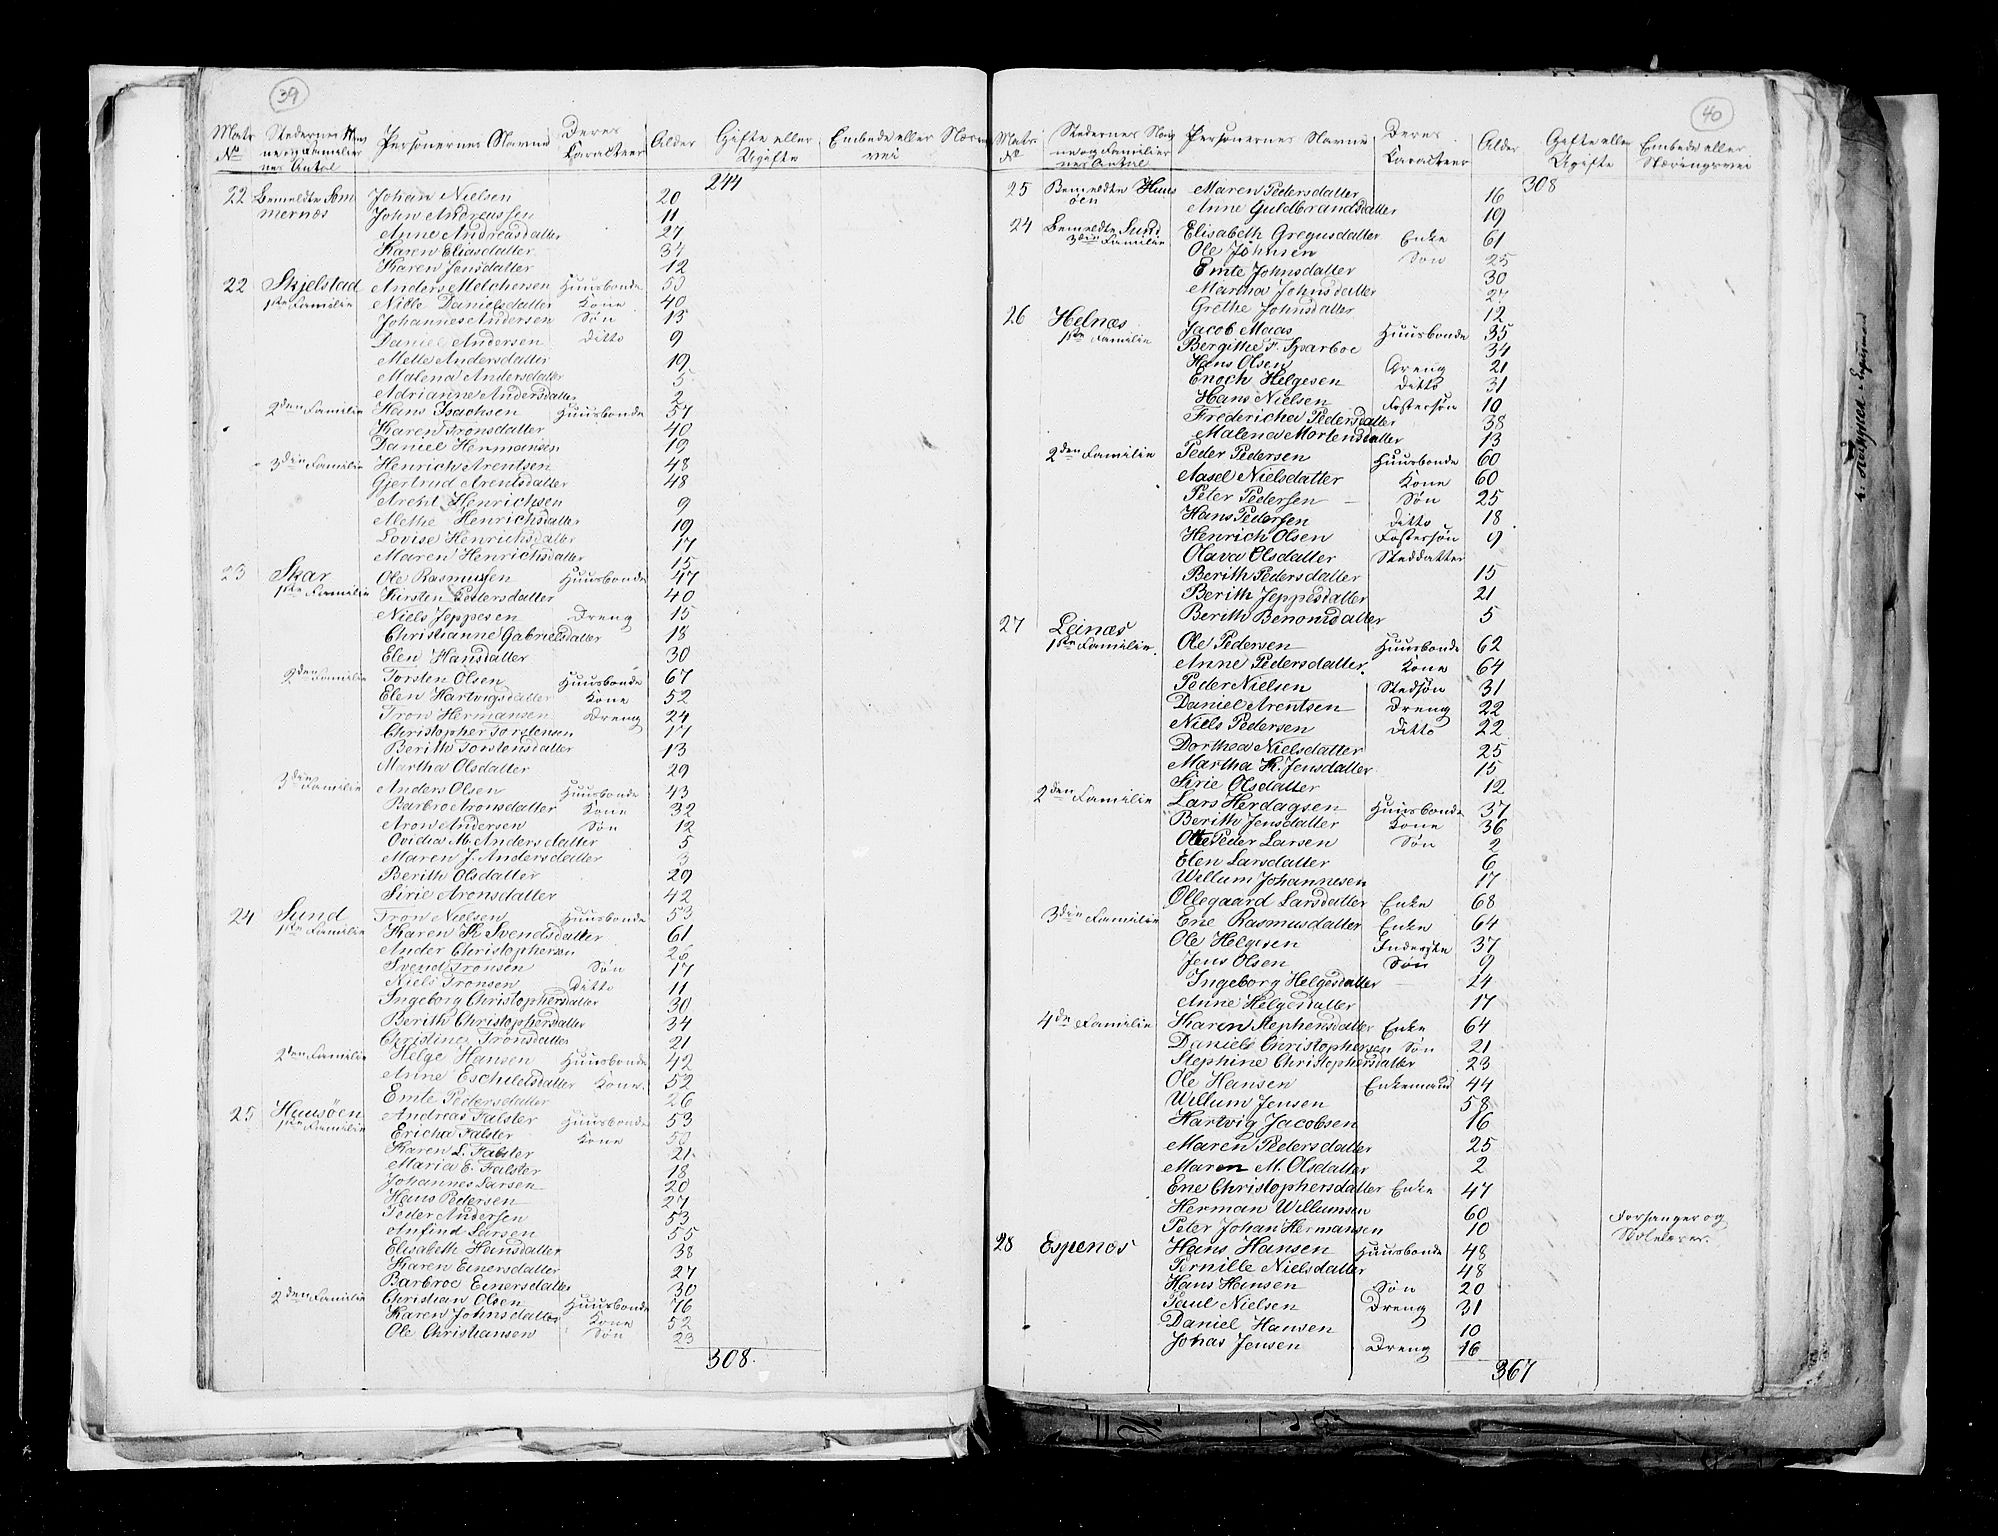 39
Matr Nº Stedernes Nav ne og Familier nes Antal Personernes Navne Deres Karacteer Alder Gifte eller Ugifte Embede eller Nærin vei
244
22 Bemeldte Som Johan Nielsen 20
mernæs John Andreassen 11
Anne Andreasdatter 27
Karen Eliasdatter 34
Karen Jonsdatter 12
22 Skjelstad Anders Melchersen Huusbonde 53
1ste Familie Nille Danielsdatter Kone 40
Johannes Andersen Søn 13
Daniel Andersen ditto 9
Mette Andersdatter 19
Malena Andersdatter 5
Adrianne Andersdatter 2
2den Familie Hans Isachsen Huusbonde 57
Karen Tronsdatter 40
Daniel Hermansen 19
3den Familie Henrich Arentsen 48
Gjertrud Arentsdatter 48
Arent Henrichsen 9
Methe Henrichsdatter 19
Lovise Henrichsdatter 17
Maren Henrichsdatter 15
23 Skar Ole Rasmussen Huusbonde 47
1ste Familie Kirsten Pedersdatter 40
Niels Jeppesen Dreng 15
Christianne Gabrielsdatter 18
Elen Hansdatter 30
2den Familie Torsten Olsen Huusbonde 67
Elen Hartvigsdatter Kone 52
Tron Hermansen Dreng 24
Christopher Torstensen 17
Berith Torstensdatter 13
Martha Olsdatter 29
3den Familie Anders Olsen Huusbonde 43
Barbro Aronsdatter Kone 32
Aron Andersen Søn 12
Ovidia M. Andersdatter 5
Maren J. Andersdatter 3
Berith Olsdatter 29
Sirie Aronsdatter 42
24 Sund Tron Nielsen Huusbonde 53
1ste Familie Karen K Svendsdatter 61
Ander Christophersen 26
Svend Tronsen Søn 17
Niels Tronsen Ditto 11
Ingeborg Christophersdatter 30
Berith Christophersdatter 34
Christine Tronsdatter 21
2den Familie Helge Hansen Huusbonde 42
Anne Eschildsdatter Kone 52
Emte Pedersdatter 26
25 Huusøen Andreas Falster Huusbonde 53
1ste Familie Ericha Falster Kone 50
Karen L. Falster 21
Maria E. Falster 18
Johannes Larsen 20
Hans Pedersen 27
Peder Andersen 53
Anfind Larsen 55
Elisabeth Hansdatter 38
Karen Einersdatter 27
Barbroe Einersdatter 30
2den Familie Christian Olsen Huusbonde 76
Karen Johnsdatter Kone 52
Ole Christiansen Søn 23
308.
40
Matr: Nº Stedernes Nav ne og Familier nes Antal Personernes Navne Deres Karacteer Alder Gifte eller Ugifte Embede eller Næringsvei
308
25 Bemeldte Huus Maren Pedersdatter 16
øen Anne Guldbrandsdatter 19
24 Bemeldte Sund Elisabeth Gregusdatter Enke 61
3die Familie Ole Johnsen Søn 25
Emte Johnsdatter 30
Martha Johnsdatter 27
Grethe Johnsdatter 12
26 Helnæs Jacob Maas Huusbonde 35
1ste Familie Bergithe F. Sparboe 34
Hans Olsen Dreng 21
Enoch Helgesen ditto 31
Hans Nielsen Fostersøn 10
Fredericha Pedersdatter 38
Malena Mortensdatter 13
2den Familie Peder Pedersen Huusbonde 60
Aasel Nielsdatter Kone 60
Peter Pedersen Søn 25
Hans Pedersen ditto 18
Henrich Olsen Fostersøn 9
Olava Olsdatter Steddatter
Berith Pedersdatter 15
Berith Jeppesdatter 21
Berith Benonisdatter 5
27 Leinæs
1ste Familie. Ole Pedersen Huusbonde 62
Anne Pedersdatter Kone 64
Peder Nielsen Stedsøn 31
Daniel Arentsen Dreng 22
Niels Pedersen ditto 22
Dorthea Nielsdatter 25
Martha K. Jensdatter 15
Sirie Olsdatter 12
2den Familie Lars Herdagsen Huusbonde 37
Berith Jensdatter Kone 36
Otte Peder Larsen Søn 2
Elen Larsdatter 6
Willum Johannesen 17
Ollegaard Larsdatter Enke 68
3die Familie Ene Rasmusdatter Enke 64
Ole Helgesen Inderste 37
Jens Olsen Søn 9
Ingeborg Helgesdatter 24
Anne Helgesdatter 17
4de Familie Karen Stephensdatter Enke 64
Daniels Christophersen Søn 21
Stephine Christophersdatter 23
Ole Hansen Enkemand 44
Willum Jensen 58
Hartvig Jacobsen 16
Maren Pedersdatter 25
Maren M. Olsdatter 2
Ene Christophersdatter Enke 47
Herman Willumsen 60 Forsanger og
Peter Johan Hermansen 10 Skolelærer.
28 Espenæs Hans Hansen Huusbonde 48
Pernille Nielsdatter 48
Hans Hansen Søn 20
Paul Nielsen Dreng 31
Daniel Hansen 10
Johas Jensen Dreng 16
367